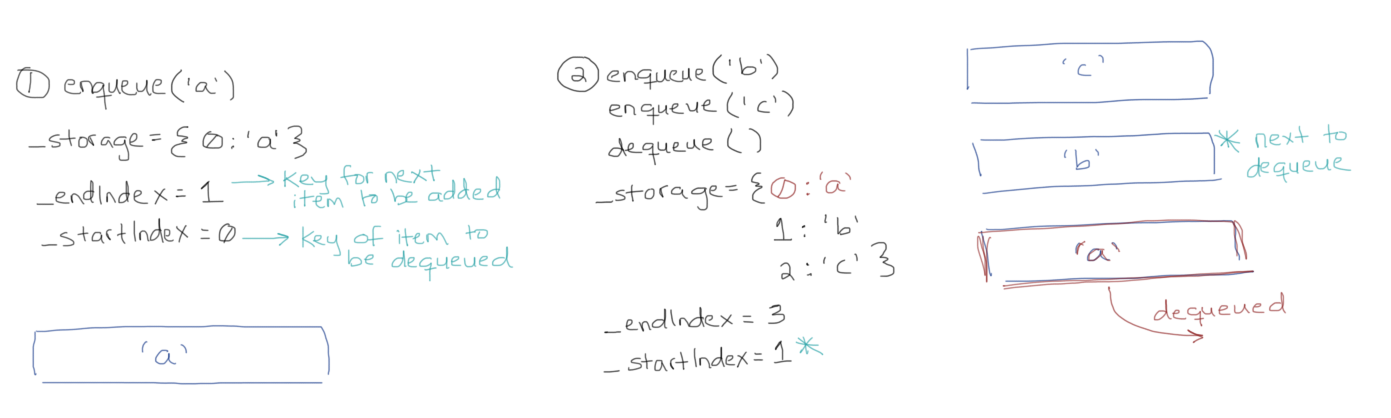 ① enqueue('a')
_storage = { 0 : 'a' }
_endIndex = 1 → key for next
item to be added
_startIndex = 0 → key of item to
be dequeued
'a'
② enqueue('b')
enqueue('c')
dequeue()
_storage = { 0 : 'a'
1 : 'b'
2 : 'c' }
_endIndex = 3
_startIndex = 1 *
'c'
'b'
* next to
dequeue
'a'
dequeued